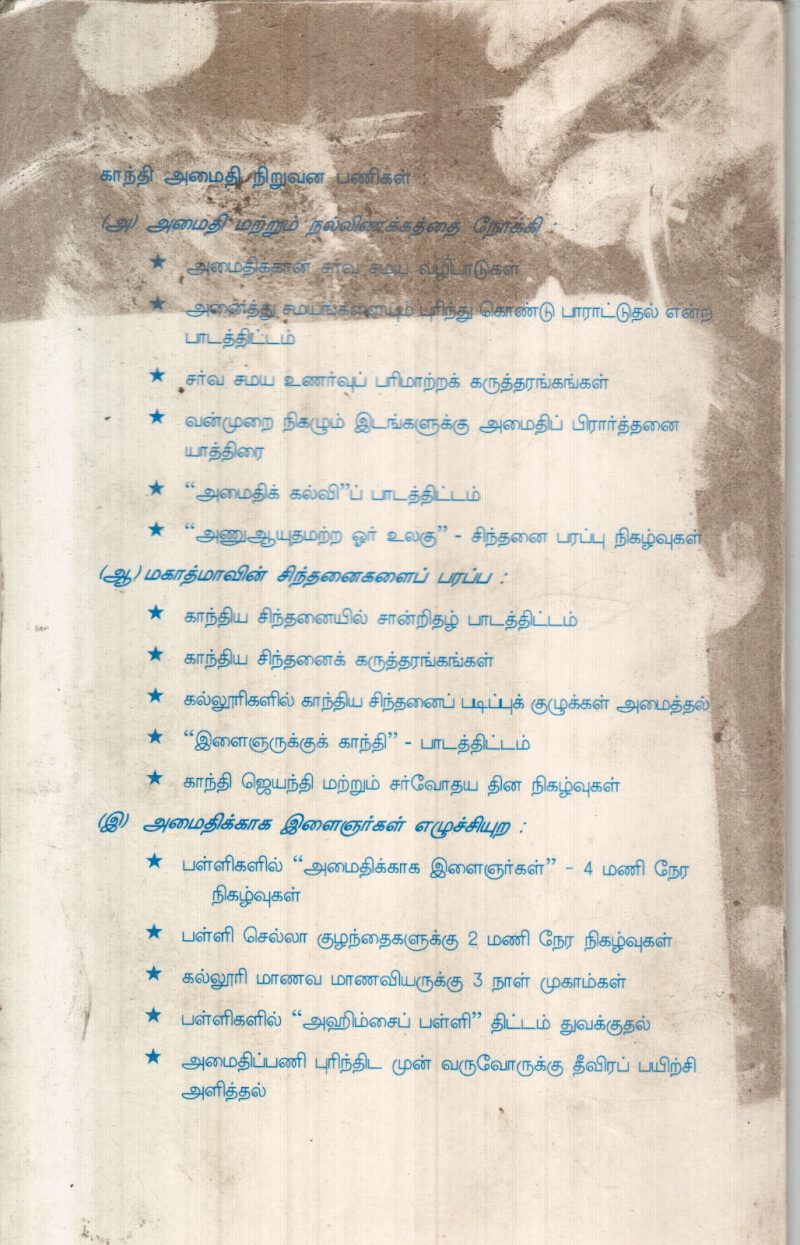 காந்தி அமைதி நிறுவன பணிகள் :
(அ) அமைதி மற்றும் நல்லிணக்கத்தை நோக்கி :
★ அமைதிக்கான சர்வ சமய வழிபாடுகள்
★ அனைத்து சமயங்களையும் புரிந்து கொண்டு பாராட்டுதல் என்ற
பாடத்திட்டம்
★ சர்வ சமய உணர்வுப் பரிமாற்றக் கருத்தரங்கங்கள்
★ வன்முறை நிகழும் இடங்களுக்கு அமைதிப் பிரார்த்தனை
யாத்திரை
★ “அமைதிக் கல்வி”ப் பாடத்திட்டம்
★ “அணுஆயுதமற்ற ஓர் உலகு” - சிந்தனை பரப்பு நிகழ்வுகள்
(ஆ) மகாத்மாவின் சிந்தனைகளைப் பரப்ப :
★ காந்திய சிந்தனையில் சான்றிதழ் பாடத்திட்டம்
★ காந்திய சிந்தனைக் கருத்தரங்கங்கள்
★ கல்லூரிகளில் காந்திய சிந்தனைப் படிப்புக் குழுக்கள் அமைத்தல்
★ “இளைஞருக்குக் காந்தி” - பாடத்திட்டம்
★ காந்தி ஜெயந்தி மற்றும் சர்வோதய தின நிகழ்வுகள்
(இ) அமைதிக்காக இளைஞர்கள் எழுச்சியுற :
★ பள்ளிகளில் “அமைதிக்காக இளைஞர்கள்” - 4 மணி நேர
நிகழ்வுகள்
★ பள்ளி செல்லா குழந்தைகளுக்கு 2 மணி நேர நிகழ்வுகள்
★ கல்லூரி மாணவ மாணவியருக்கு 3 நாள் முகாம்கள்
★ பள்ளிகளில் “அஹிம்சைப் பள்ளி” திட்டம் துவக்குதல்
★ அமைதிப்பணி புரிந்திட முன் வருவோருக்கு தீவிரப் பயிற்சி
அளித்தல்